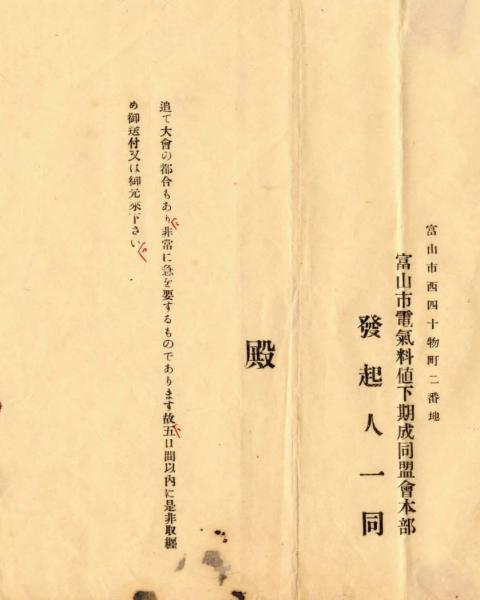 富山市西四十物町二番地
富山市電氣料値下期成同盟會本部
發起人一同
殿
追て大會の都合もあり非常に急を要するものであります故五日間以內に是非取纒
め御送付又は御元來下さい